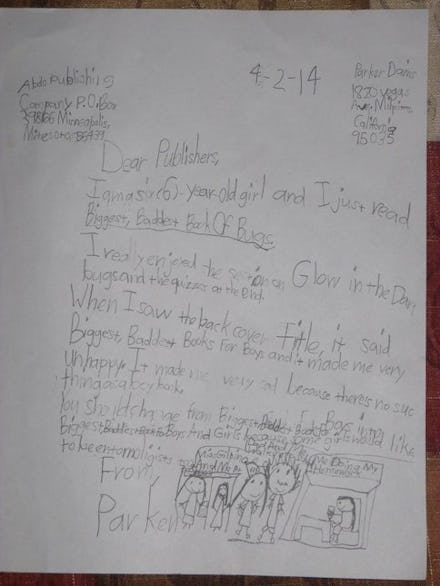 4-2-14
Abdo Publishing
Company P.O. Box
398166 Minneapolis,
Minnesota 55439
Parker Dains
1820 Vegas
Ave, Milpitas,
California
95035
Dear Publishers,
I am a six (6)-year-old girl and I just read
Biggest, Baddest Book Of Bugs.
I really enjoyed the section on Glow in the Dark
bugs and the quizzes at the end.
When I saw the back cover Title, it said
Biggest, Baddest Books For Boys and it made me very
unhappy. It made me very sad because there's no such
thing as a boy book.
You should change from Biggest, Baddest Books For Boys into
Biggest, Baddest Books For Boys And Girls because some girls would like
to be entomologists too.
From,
Parker